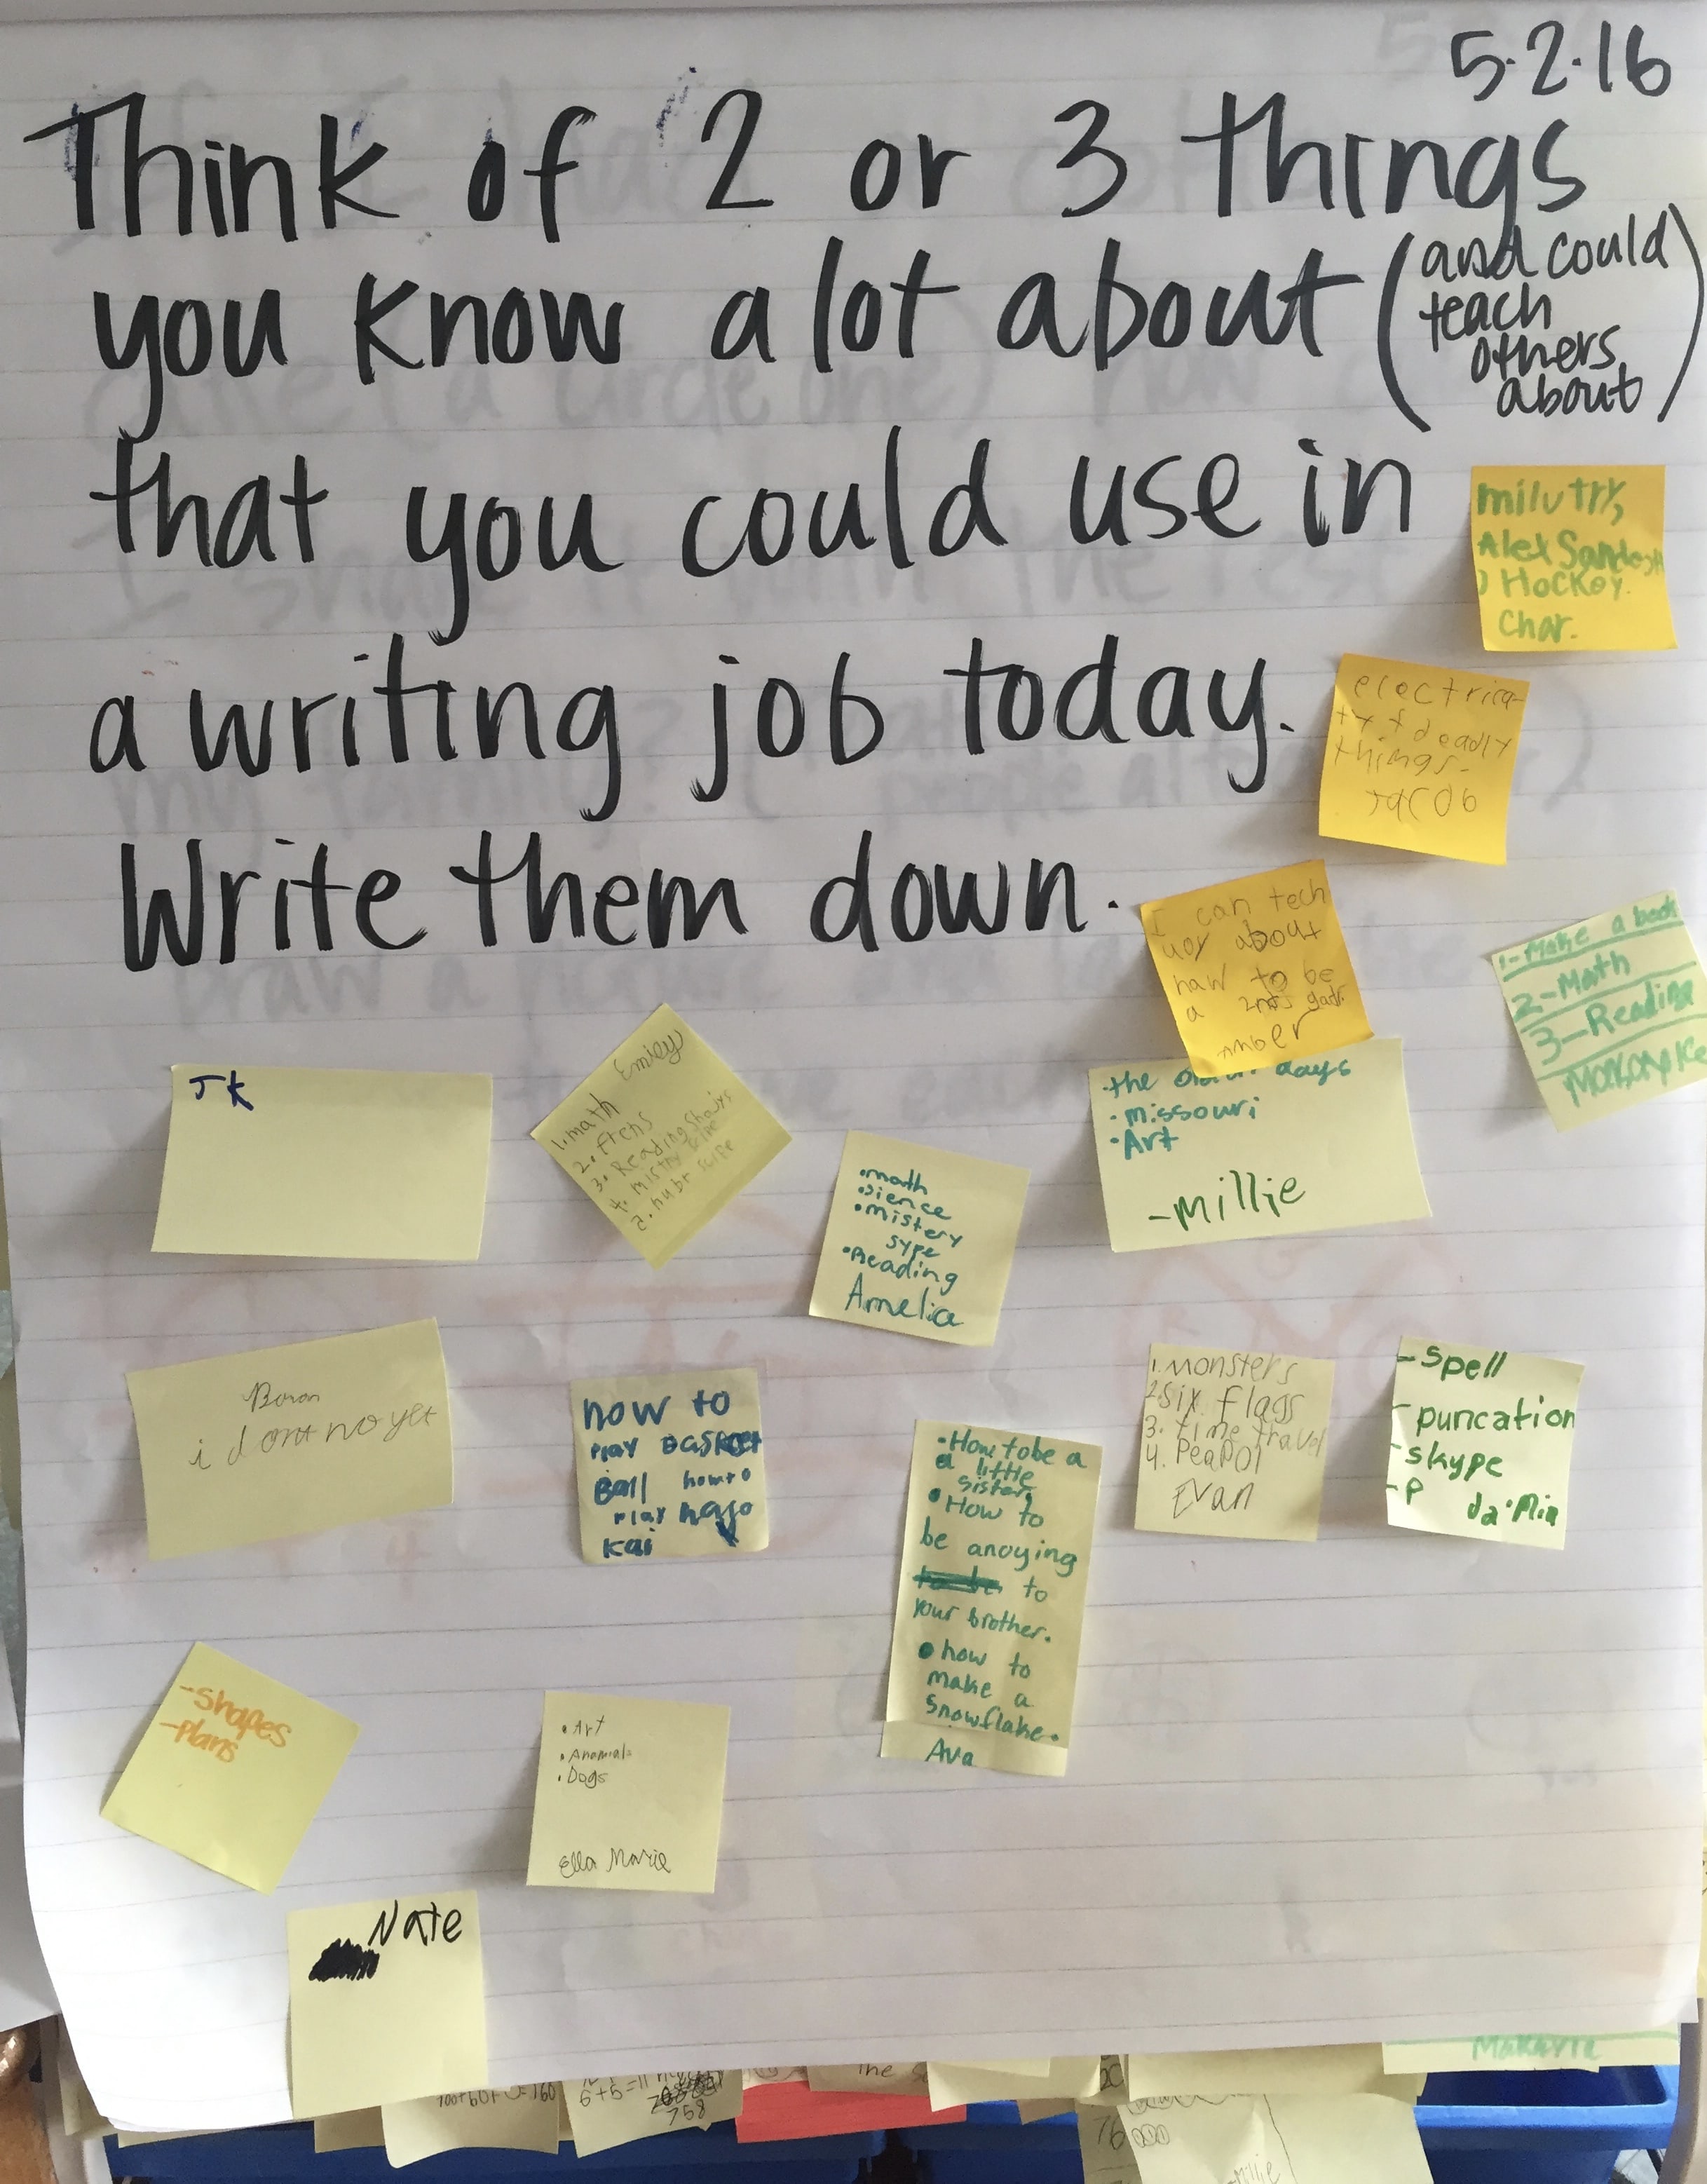 5.2.16
Think of 2 or 3 things
you know a lot about (and could
teach
others
about)
that you could use in
a writing job today.
Write them down.
milutry,
Alex
Hockey.
Char.
electrica-
ty + deadly
things-
Jacob
I can tech
about
haw to be
a
1-Make a book
2-Math
3-Reading
JK
Emiley
1. math
2.
3. Reading
4.
the days
·Missouri
·Art
-Millie
·math
·sience
·mistery
sype
·Reading
Amelia
i dont no yet
how to
play
Ball how to
play
Kai
·How to be a
a little
sister.
·How to
be anoying
to
your brother.
·how to
make a
snowflake.
Ava
1. Monsters
2. Six Flags
3. Time travel
4. PeaPOl
Evan
-Spell
-puncation
-skype
-P
da'Mia
-shapes
-plans
·Art
·Anomials
·Dogs
Ella Marie
Nate
6+5=11
758
the
76
Millie